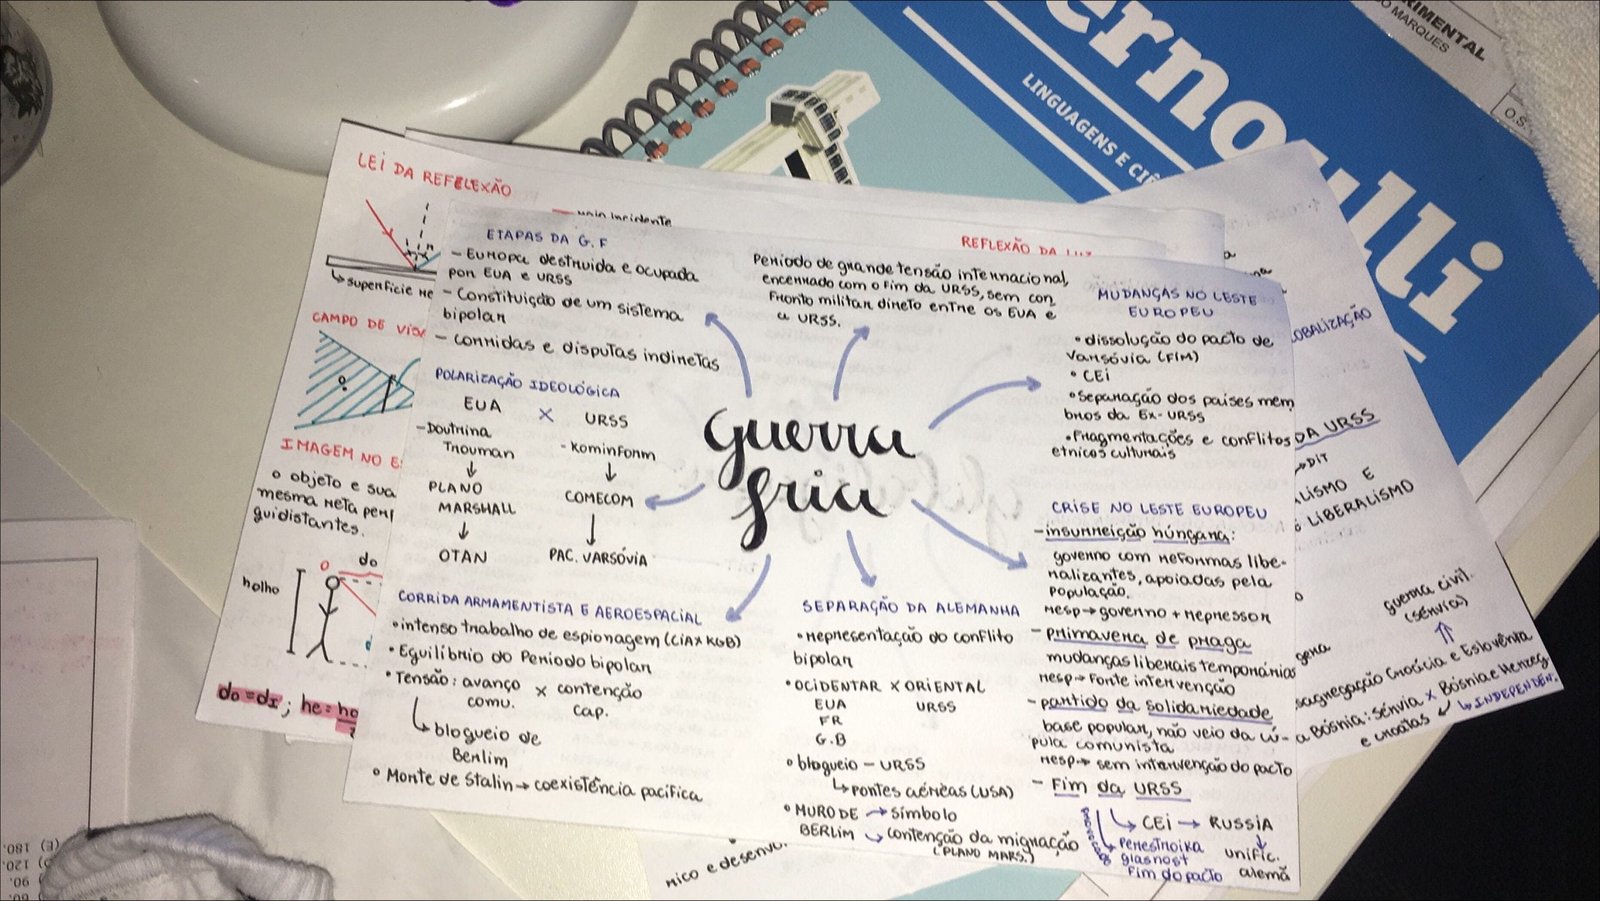 ernoulli
LINGUAGENS E CIÊ
RIMENTAL
O MARQUES
O.S.
LEI DA REFELEXÃO
raio incidente
REFLEXÃO DA LUZ
superfície Re
CAMPO DE VIS
IMAGEM NO E
O objeto e sua
mesma reta perp
quidistantes.
holho
O
do
do = di ; he = ho
ETAPAS DA G.F
- EUROPA destruida e ocupada
por EUA e URSS
- Constituição de um sistema
bipolar
- corridas e disputas indiretas
POLARIZAÇÃO IDEOLÓGICA
EUA X URSS
- Doutrina
Trouman
- Kominform
PLANO
MARSHALL
COMECOM
OTAN
PAC. VARSÓVIA
Período de grande tensão internacional,
encerrado com o fim da URSS, sem con
fronto militar direto entre os EUA e
a URSS.
guerra
fria
MUDANÇAS NO LESTE
EUROPEU
• dissolução do pacto de
Varsóvia (FIM)
• CEI
• Separação dos países mem
bros da Ex-URSS
• Fragmentações e conflitos
etnicos culturais
CRISE NO LESTE EUROPEU
- insurreição húngara:
governo com reformas libe-
ralizantes, apoiadas pela
população.
Resp → governo + repressor
- primavera de praga
mudanças liberais temporárias
Resp → Forte intervenção
- partido da solidariedade
base popular, não veio da cú-
pula comunista
Resp → sem intervenção do pacto
- Fim da URSS
CEI → RUSSIA
provocado
perestroika
glasnost
Fim do pacto
unific.
alemã
CORRIDA ARMAMENTISTA E AEROESPACIAL
• intenso trabalho de espionagem (CIA X KGB)
• Equilíbrio do Período bipolar
• Tensão: avanço X contenção
comu. cap.
bloqueio de
Berlim
• Monte de Stalin → coexistência pacífica
SEPARAÇÃO DA ALEMANHA
• representação do conflito
bipolar
• OCIDENTAR X ORIENTAL
EUA URSS
FR
G.B
• bloqueio - URSS
pontes aéreas (USA)
• MURO DE → símbolo
BERLIM → contenção da migração
(PLANO MARS.)
mico e desenvo
LOBALIZAÇÃO
DA URSS
→ DIT
LISMO E
LIBERALISMO
guerra civil.
(SÉRVIA)
gena
sagregação Croácia e Eslovênia
a Bósnia: Sérvia X Bósnia e Herzeg.
e croatas
INDEPENDÊN.
(E) 180.
120.
90.
60.